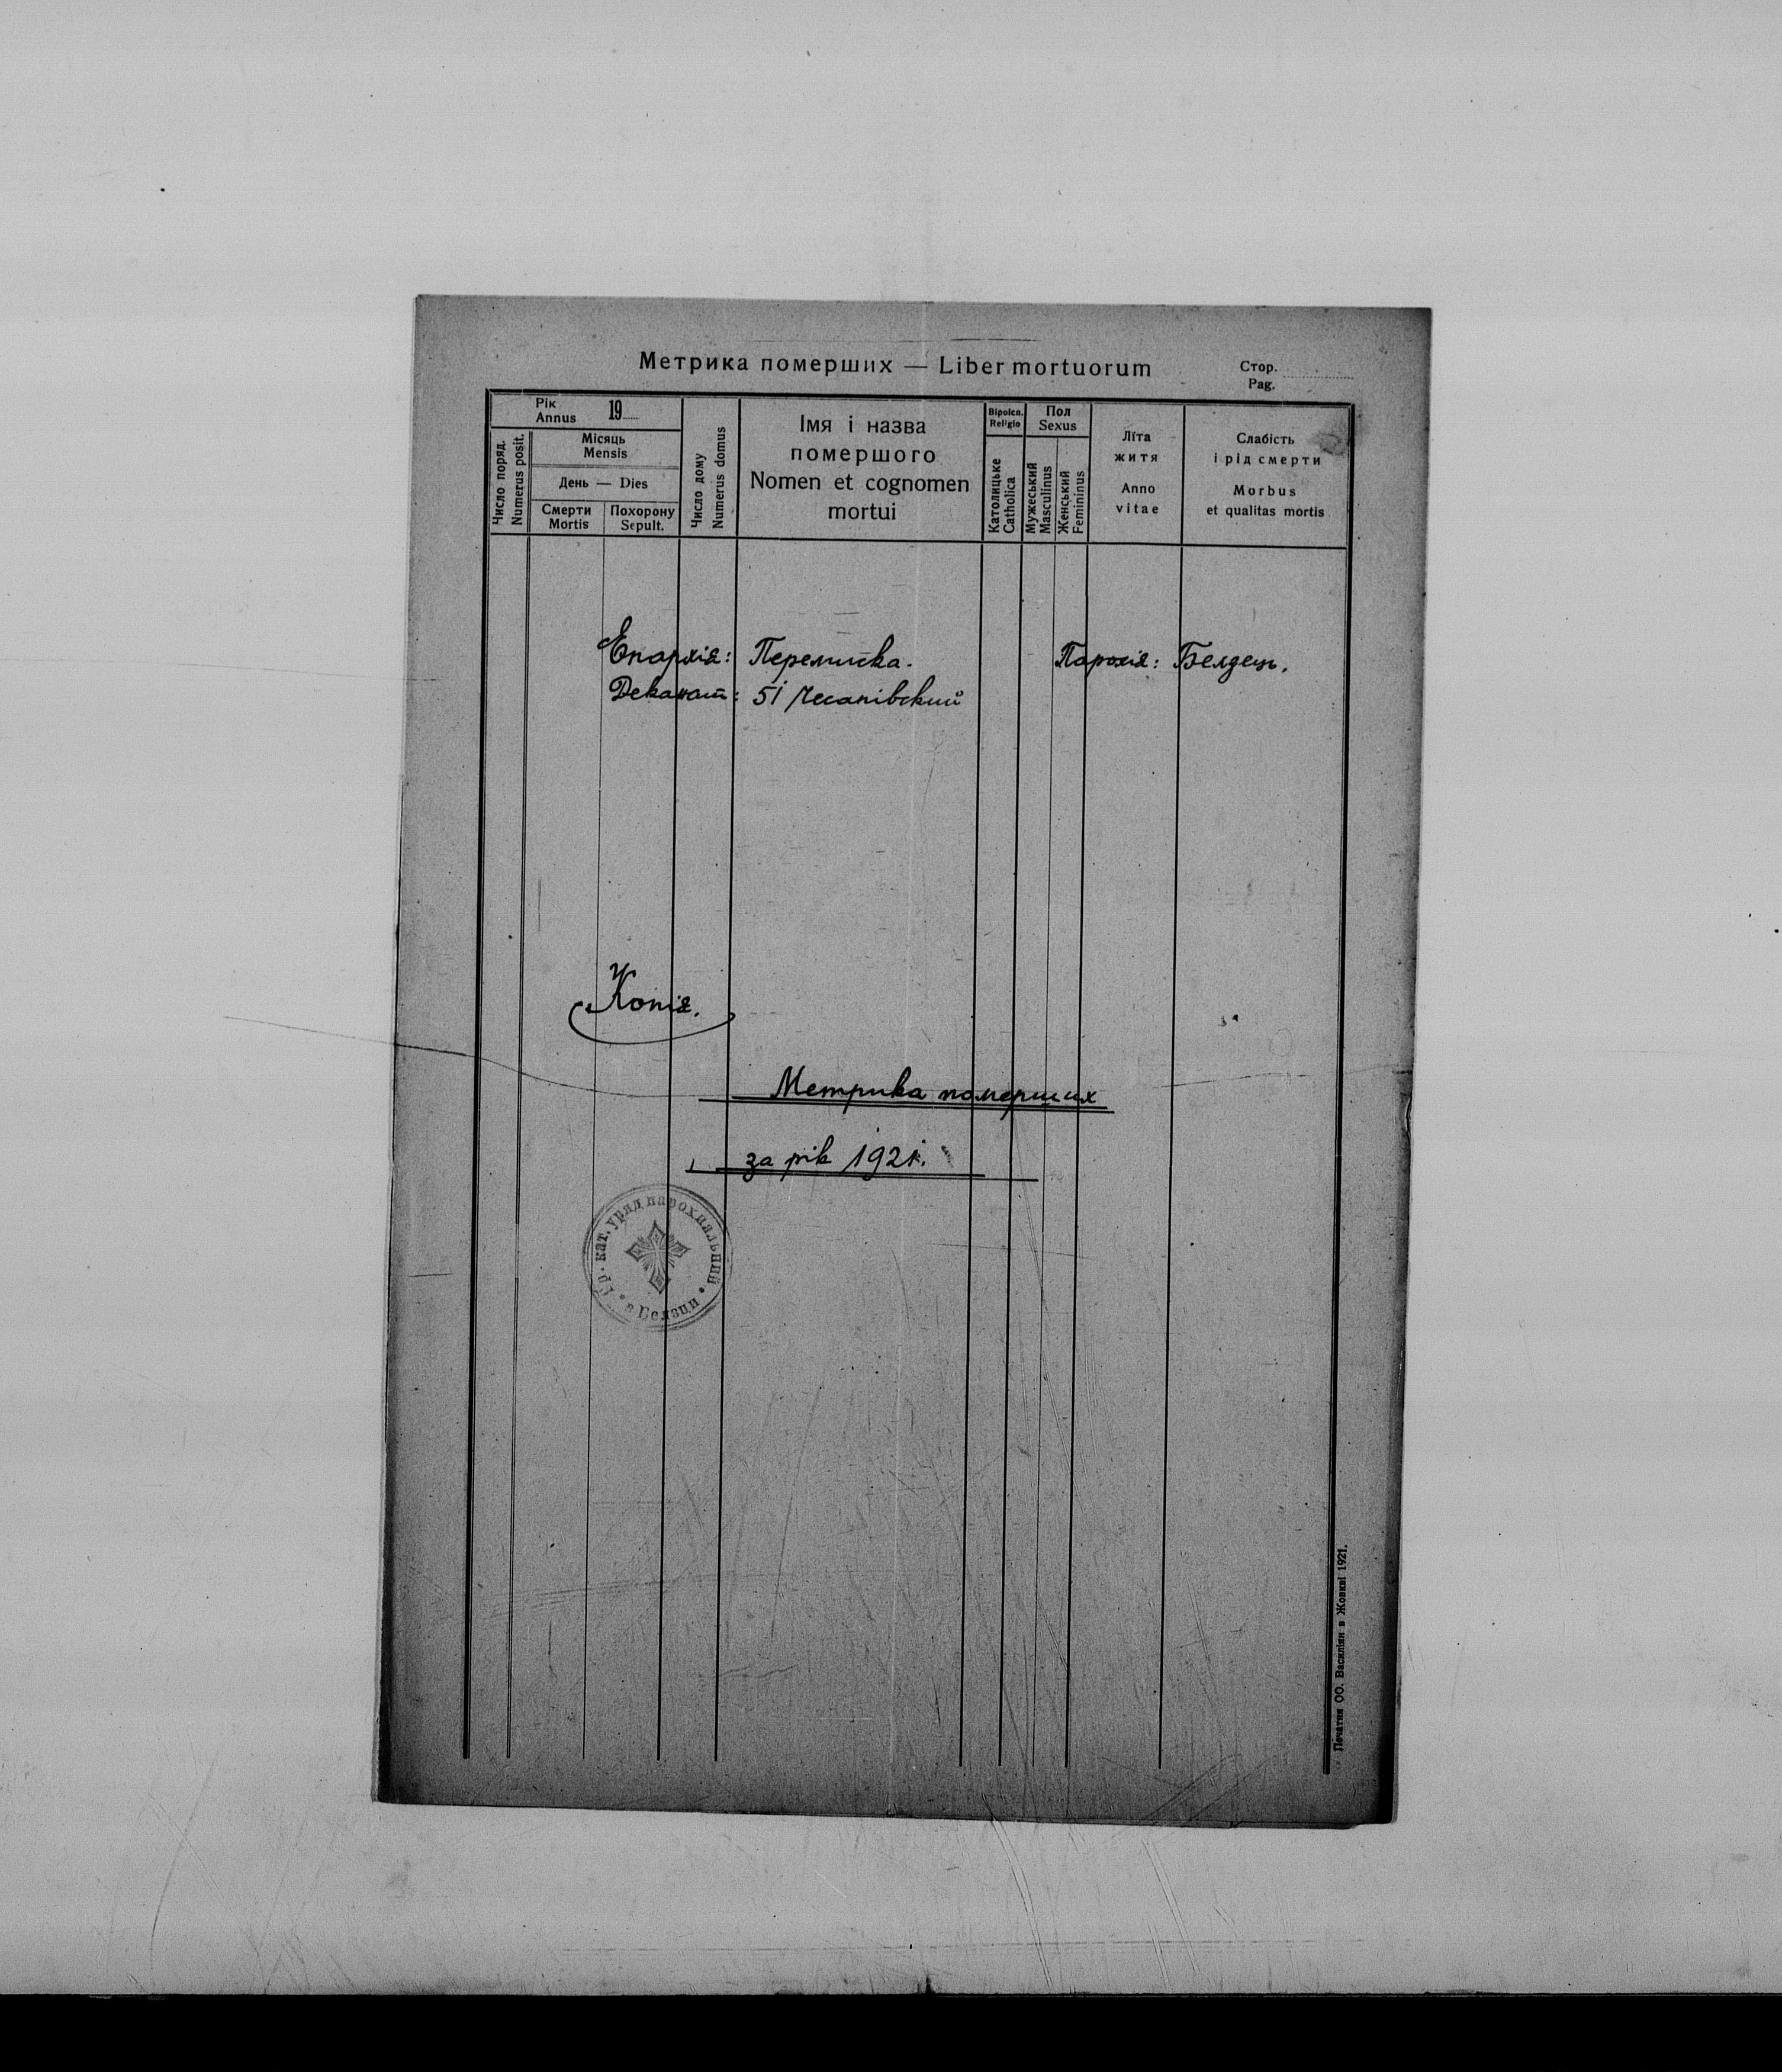 Метрика померших — Liber mortuorum
Стор.
Pag.
Рік
Annus 19
Число поряд.
Numerus posit.
Місяць
Mensis
День — Dies
Смерти
Mortis
Похорону
Sepult.
Число дому
Numerus domus
Імя і назва
помершого
Nomen et cognomen
mortui
Віроісп.
Religio
Католицьке
Catholica
Пол
Sexus
Мужеський
Masculinus
Женський
Femininus
Літа
життя
Anno
vitae
Слабість
і рід смерти
Morbus
et qualitas mortis
Епархія: Перемиска. Парохія: Белзець.
Деканат: 5і Чесанівский
Копія.
Метрика померших
за рік 1921.
Гр. кат. уряд парохиальний
в Белзци
Печатня ОО. Василіян в Жовкві 1921.